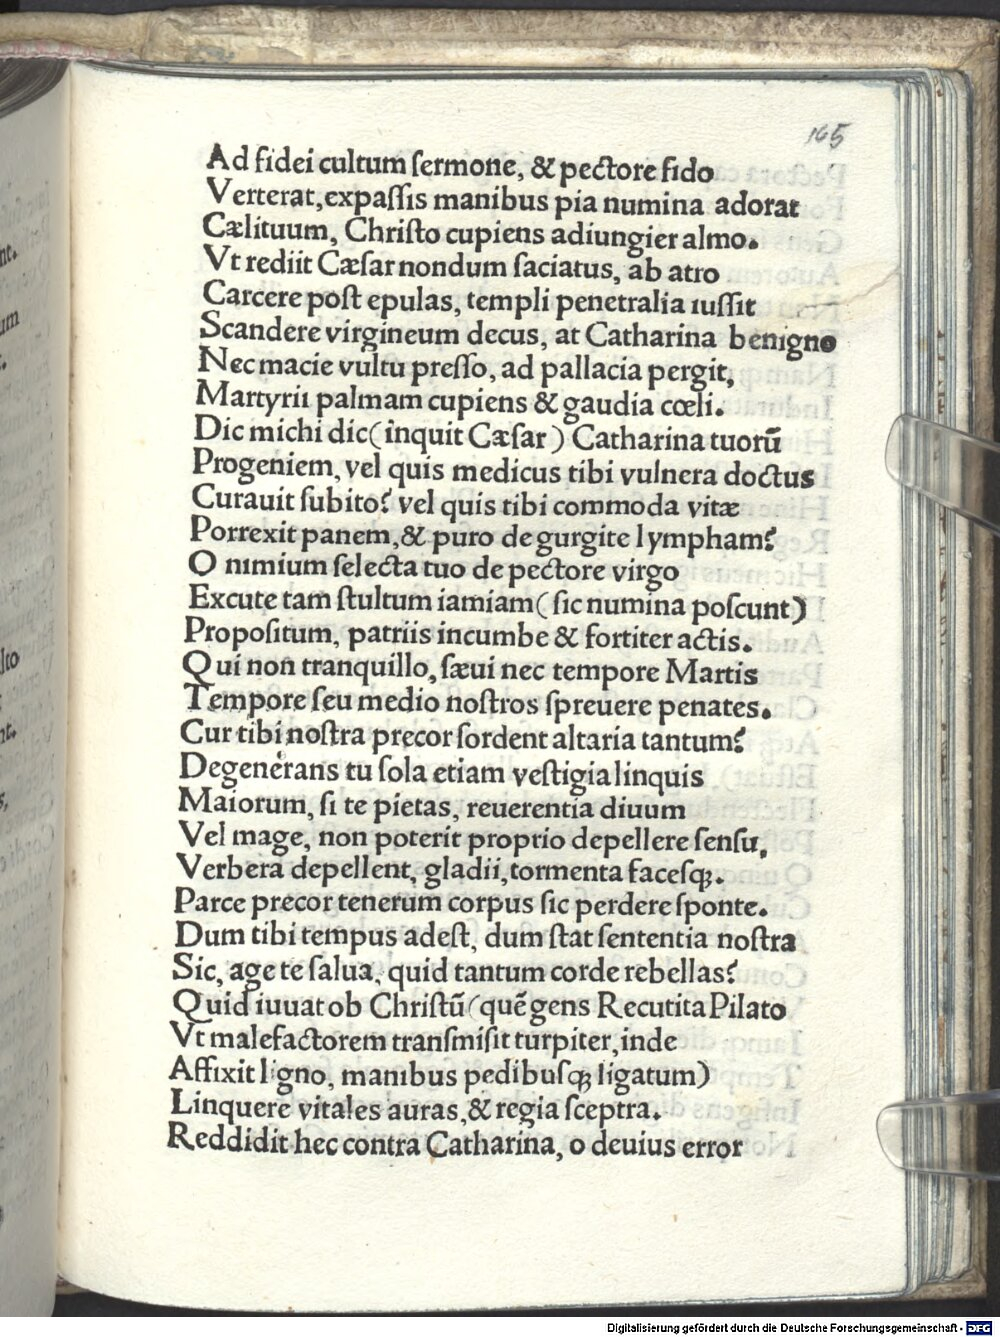 165
Ad fidei cultum ſermone, & pectore fido
Verterat, expaſſis manibus pia numina adorat
Cælituum, Chriſto cupiens adiungier almo.
Vt rediit Cæſar nondum ſaciatus, ab atro
Carcere poſt epulas, templi penetralia iuſſit
Scandere virgineum decus, at Catharina benigno
Nec macie vultu preſſo, ad pallacia pergit,
Martyrii palmam cupiens & gaudia cœli.
Dic michi dic (inquit Cæſar) Catharina tuorū
Progeniem, vel quis medicus tibi vulnera doctus
Curauit ſubito? vel quis tibi commoda vitæ
Porrexit panem, & puro de gurgite lympham?
O nimium ſelecta tuo de pectore virgo
Excute tam ſtultum iamiam (ſic numina poſcunt)
Propoſitum, patriis incumbe & fortiter actis.
Qui non tranquillo, ſæui nec tempore Martis
Tempore ſeu medio noſtros ſpreuere penates.
Cur tibi noſtra precor ſordent altaria tantum?
Degenerans tu ſola etiam veſtigia linquis
Maiorum, ſi te pietas, reuerentia diuum
Vel mage, non poterit proprio depellere ſenſu,
Verbera depellent, gladii, tormenta faceſqꝫ.
Parce precor tenerum corpus ſic perdere ſponte.
Dum tibi tempus adeſt, dum ſtat ſententia noſtra
Sic, age te ſalua, quid tantum corde rebellas?
Quid iuuat ob Chriſtū (quē gens Recutita Pilato
Vt malefactorem tranſmiſit turpiter, inde
Affixit ligno, manibus pedibuſqꝫ ligatum)
Linquere vitales auras, & regia ſceptra.
Reddidit hec contra Catharina, o deuius error
nt.
um
lto
nt.
Digitalisierung gefördert durch die Deutsche Forschungsgemeinschaft - DFG